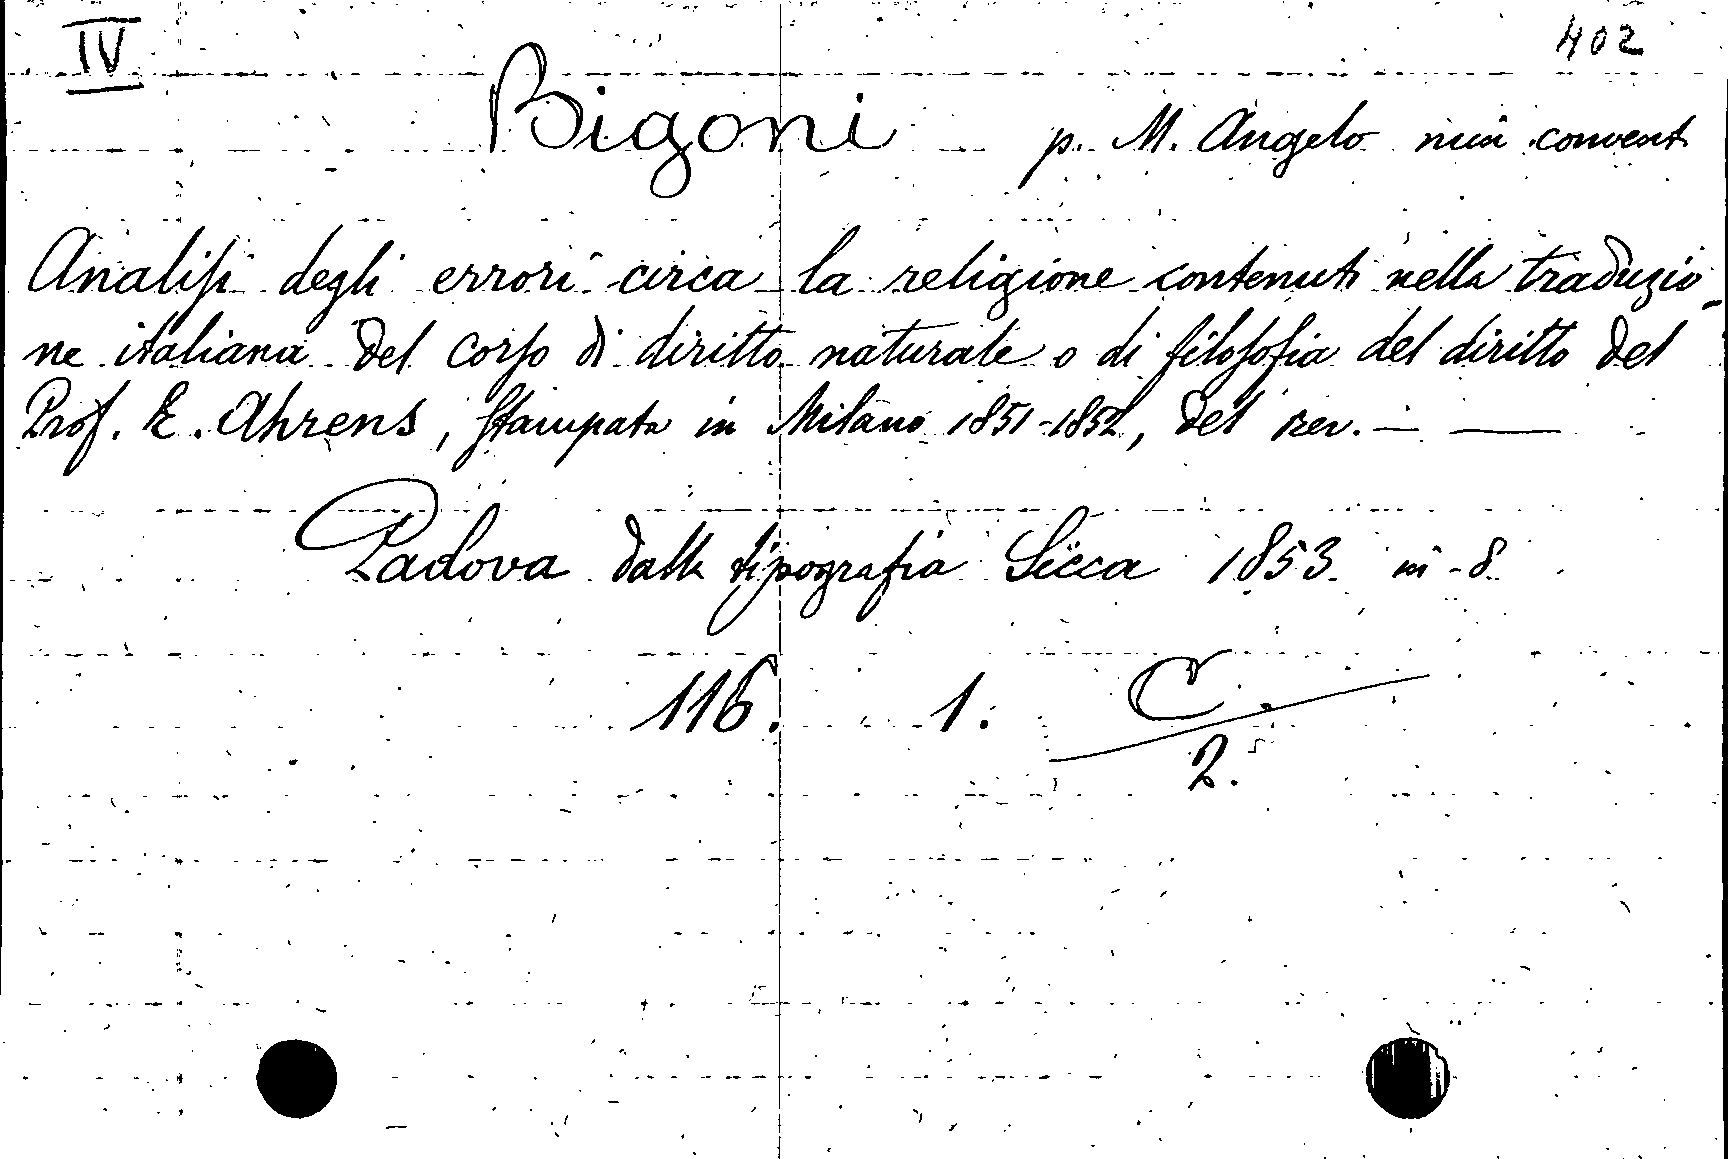 IV 402
Bigoni p. M. Angelo min convent
Analisi degli errori circa la religione contenuti nella traduzio-
ne italiana del corso di diritto naturale o di filosofia del diritto del
Prof. E. Ahrens, stampata in Milano 1851-1852, del rev. — —
Padova dalla tipografia Sicca 1853 in-8
116. 1. C.
2.